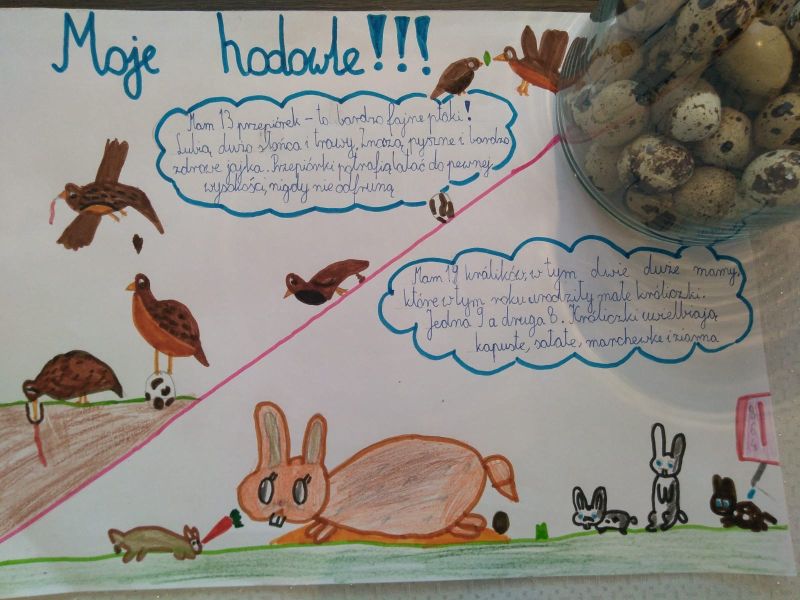 Moje hodowle!!!
Mam 13 przepiórek – to bardzo fajne ptaki!
Lubią dużo słońca i trawy. Znoszą pyszne i bardzo
zdrowe jajka. Przepiórki potrafią latać do pewnej
wysokości, nigdy nie odfruną
Mam 19 królików, w tym dwie duże mamy,
które w tym roku urodziły małe króliczki.
Jedna 9 a druga 8. Króliczki uwielbiają
kapustę, sałatę, marchewkę i ziarna